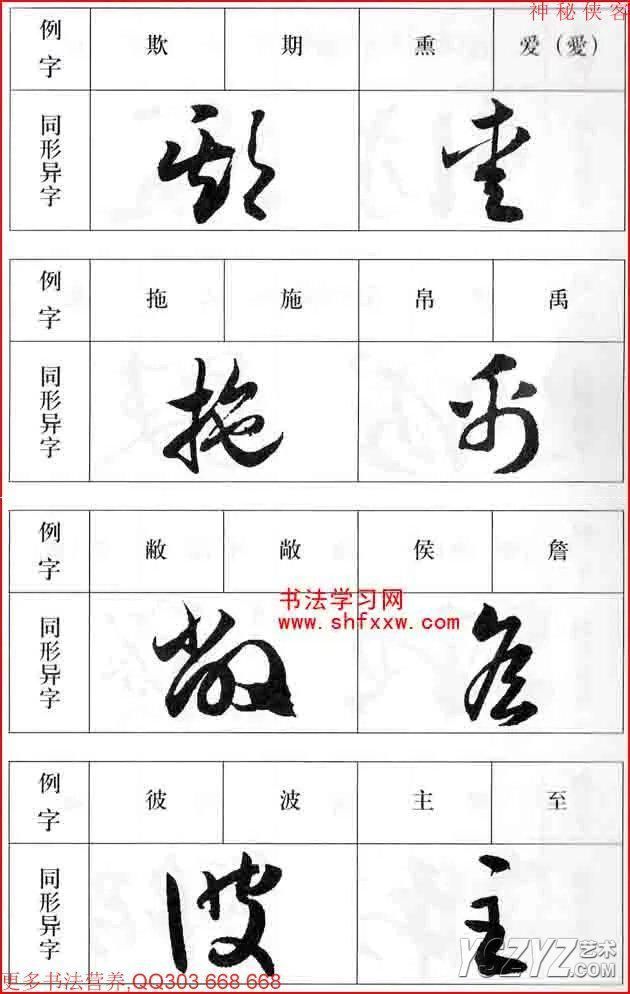 神秘侠客
例字 欺 期 熏 爱（愛）
同形异字
例字 拖 施 帛 禹
同形异字
例字 敝 敞 侯 詹
同形异字
书法学习网
www.shfxxw.com
例字 彼 波 主 至
同形异字
YSZYZ艺术
.com
更多书法营养,QQ303 668 668